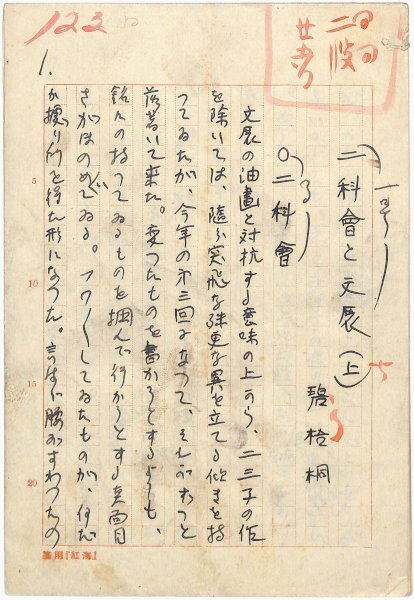 123
1.
二科會と文展（上）
碧梧桐
○二科會
文展の油畫と対抗する意味の上から、二三子の作
を除いては、随分突飛な殊更な異を立てる傾きを持
つてゐたが、今年の第三回になつて、そんな
落着いて来た。変つたものを書かうとするよりも、
銘々の持つてゐるものを掴んで行かうとする真面目
さがほのめいてゐる。フワ〳〵してゐたものが、何だ
か据り所を得た形になつた。言はゞ腰がすわつたの
5
10
15
20
用『紅海』